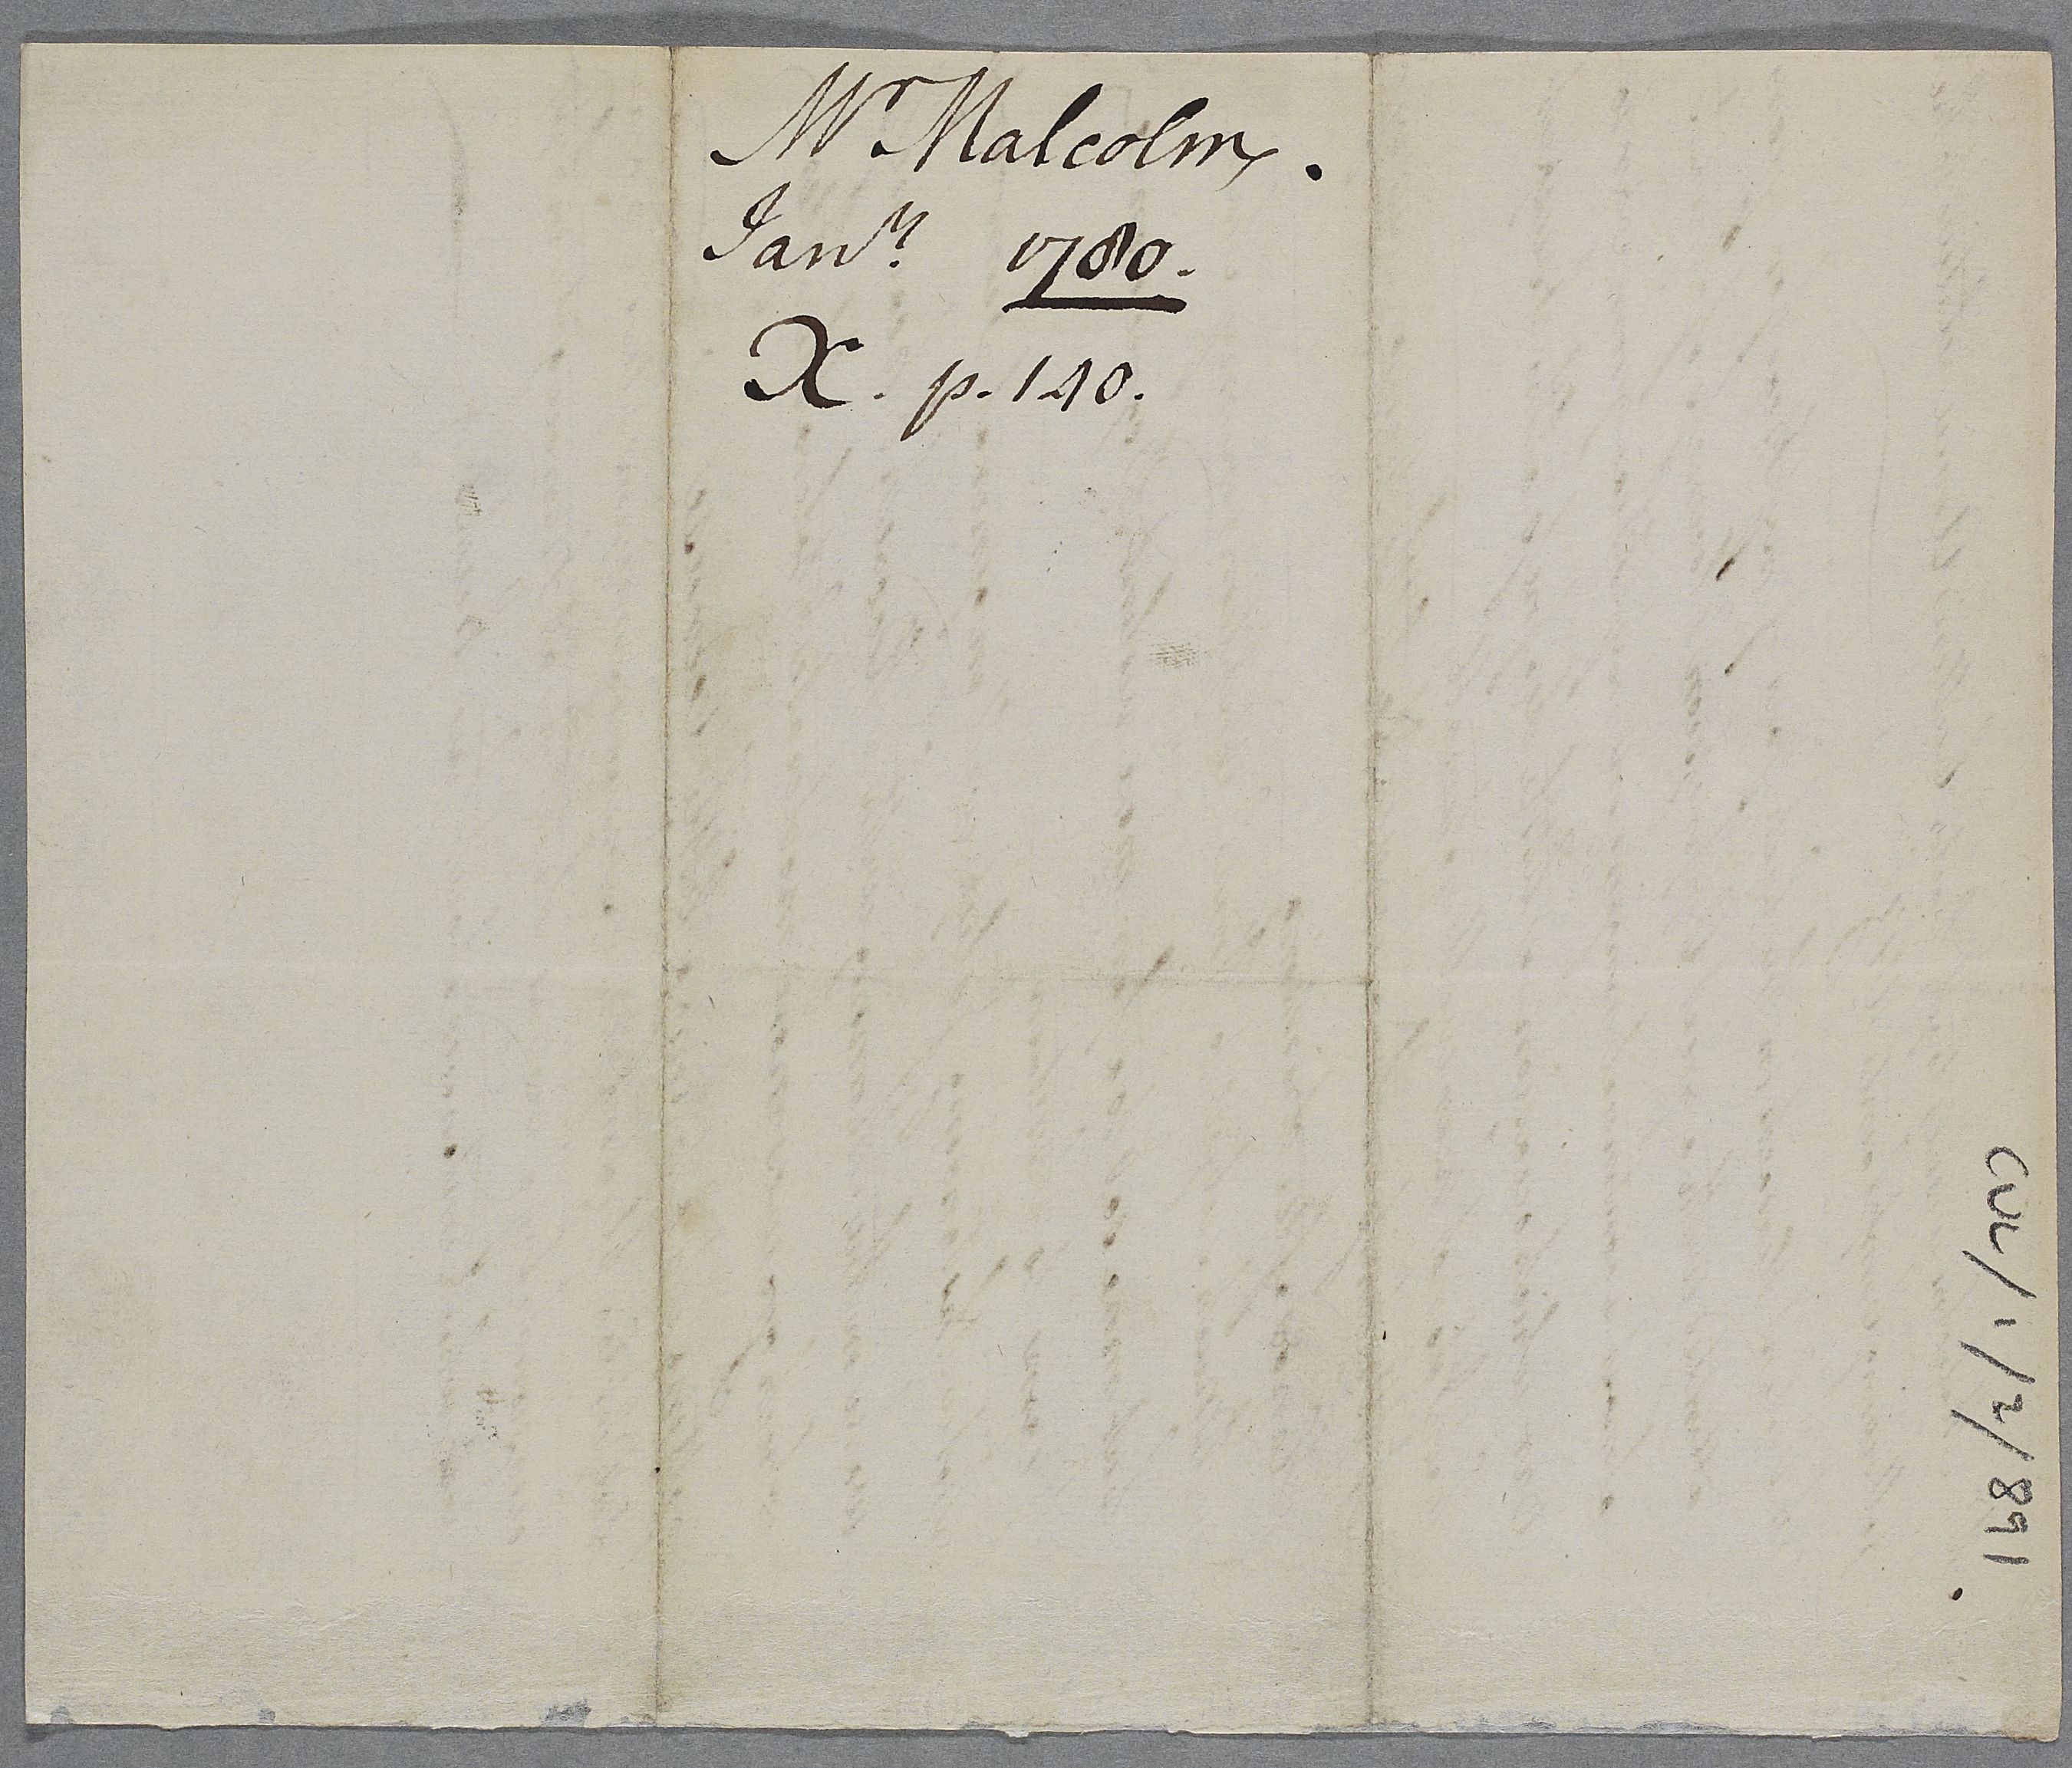 Mr Malcolm.
Jany. 1780.
X. p. 140.
CUL/1/2/1891